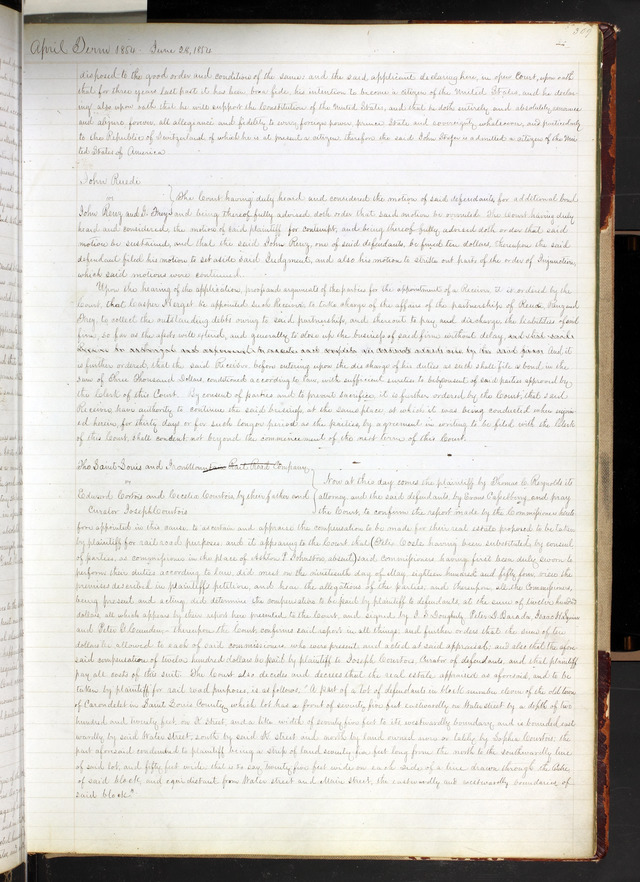 309
April Term 1854. June 28, 1854
disposed to the good order and condition of the same: and the said applicant declaring here, in open Court, upon oath
that for three years last past it has been bona fide, his intention to become a citizen of the United States, and he declar-
ing also upon oath that he will support the Constitution of the United States, and that he doth entirely and absolutely renounce
and abjure forever, all allegiance and fidelity to every foreign power prince State and sovereignty whatsoever, and particularly
to the Republic of Switzerland of which he is at present a citizen therefore the said John is admitted a citizen of the Uni-
ted States of America
John Ruede
vs
The Court having duly heard and considered the motion of said defendants for additional bond
John Renz and J. Frey and being thereof fully advised doth order that said motion be overruled. The Court having duly
heard and considered the motion of said plaintiff for contempt, and being thereof fully advised doth order that said
motion be sustained, and that the said John Renz, one of said defendants, be fined ten dollars, thereupon the said
defendant filed his motion to set aside said Judgment, and also his motion to strike out parts of the order of Injunction,
which said motions were continued.
Upon the hearing of the application, proof and arguments of the parties for the appointment of a Receiver it is ordered by the
Court, that Casper be appointed such Receiver, to take charge of the affairs of the partnership of Ruede, Renz and
Frey, to collect the outstanding debts owing to said partnership, and thereout to pay and discharge the liabilities of said
firm, so far as the assets will extend, and generally to close up the business of said firm without delay,
And it
is further ordered, that the said Receiver before entering upon the discharge of his duties as such shall file a bond in the
sum of Three Thousand Dollars, conditioned according to law, with sufficient sureties to be of said parties approved by
the Clerk of this Court. By consent of parties and to prevent sacrifice it is further ordered by the Court, that said
Receiver have authority to continue the said business at the same place at which it was being conducted when enjoin-
ed herein, for thirty days or for such longer period as the parties by agreement in writing to be filed with the Clerk
of this Court shall consent not beyond the commencement of the next term of this Court.
The Saint Louis and Iron Mountain Rail Road Company
vs
Now at this day comes the plaintiff by Thomas C. Reynolds its
Edward Courtois and Cecelia Courtois by their father and
attorney, and the said defendants by and pray
Curator Joseph Courtois
the Court, to confirm the report made by the Commissioners hereto-
fore appointed in this cause to ascertain and appraise the compensation to be made for their real estate proposed to be taken
by plaintiff for rail road purposes, and it appearing to the Court that (Felix Coste having been substituted by consent
of parties, as commissioner in the place of P. Johnston absent) said commissioners having first been duly sworn to
perform their duties according to law, did meet on the nineteenth day of May eighteen hundred and fifty four view the
premises described in plaintiff's petition, and hear the allegations of the parties, and thereupon all the Commissioners,
being present and acting did determine the compensation to be paid by plaintiff to defendants, at the sum of twelve hundred
dollars all which appears by their report here presented to the Court, and signed by Peter D. Barada, Isaac
and Peter Thereupon the Court confirms said report in all things: and further orders that the sum of ten
dollars be allowed to each of said commissioners who were present and acted at said appraisal, and also that the afore-
said compensation of twelve hundred dollars be paid by plaintiff to Joseph Courtois, Curator of defendants, and that plaintiff
pay all costs of this suit. The Court also decides and decrees that the real estate appraised as aforesaid, and to be
taken by plaintiff for rail road purposes is as follows, "A part of a lot of defendants in block number eleven of the old town
of Carondelet in Saint Louis County which lot has a front of seventy five feet eastwardly on Water street by a depth of two
hundred and ninety feet, on St. street, and a like width of seventy five feet to its westwardly boundary, and is bounded east-
wardly by said Water street, south by said St. street and north by land owned now or lately by Sophie Courtois: the
part aforesaid condemned to plaintiff being a strip of land seventy five feet long from the north to the southwardly line
of said lot, and fifty feet wide, that is to say twenty five feet wide on each side of a line drawn through the
of said block, and equi distant from Water street and Main street, the eastwardly and westwardly boundaries of
said block."